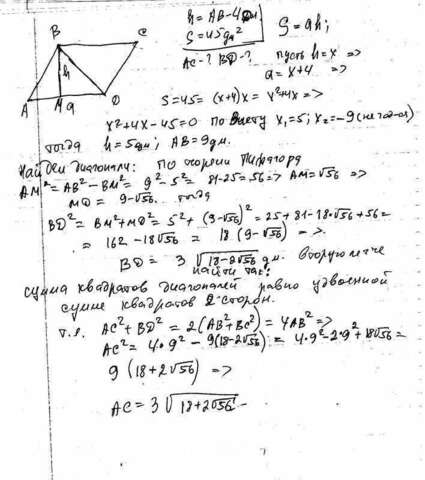 B C
h
A M a D
h = AB - 4дм.
S = 45 дм²
AC - ? BD - ?
S = ah;
пусть h = x =>
a = x+4 =>
S = 45 = (x+4)x = x²+4x =>
x²+4x-45=0 по Виету x₁=5; x₂=-9 (не год-я)
тогда h = 5дм; AB = 9дм.
Найдём диагонали: по теореме Пифагора
AM² = AB² - BM² = 9² - 5² = 81-25 = 56 => AM = √56 =>
MD = 9-√56. тогда
BD² = BM² + MD² = 5² + (9-√56)² = 25 + 81 - 18·√56 + 56 =
= 162 - 18√56 = 18(9-√56) =>
BD = 3√(18-2√56) дм. Вторую легче
найти так:
сумма квадратов диагоналей равна удвоенной
сумме квадратов 2 сторон.
т.е. AC² + BD² = 2(AB² + BC²) = 4AB² =>
AC² = 4·9² - 9(18-2√56) = 4·9² - 2·9² + 18√56 =
9(18+2√56) =>
AC = 3√(18+2√56)